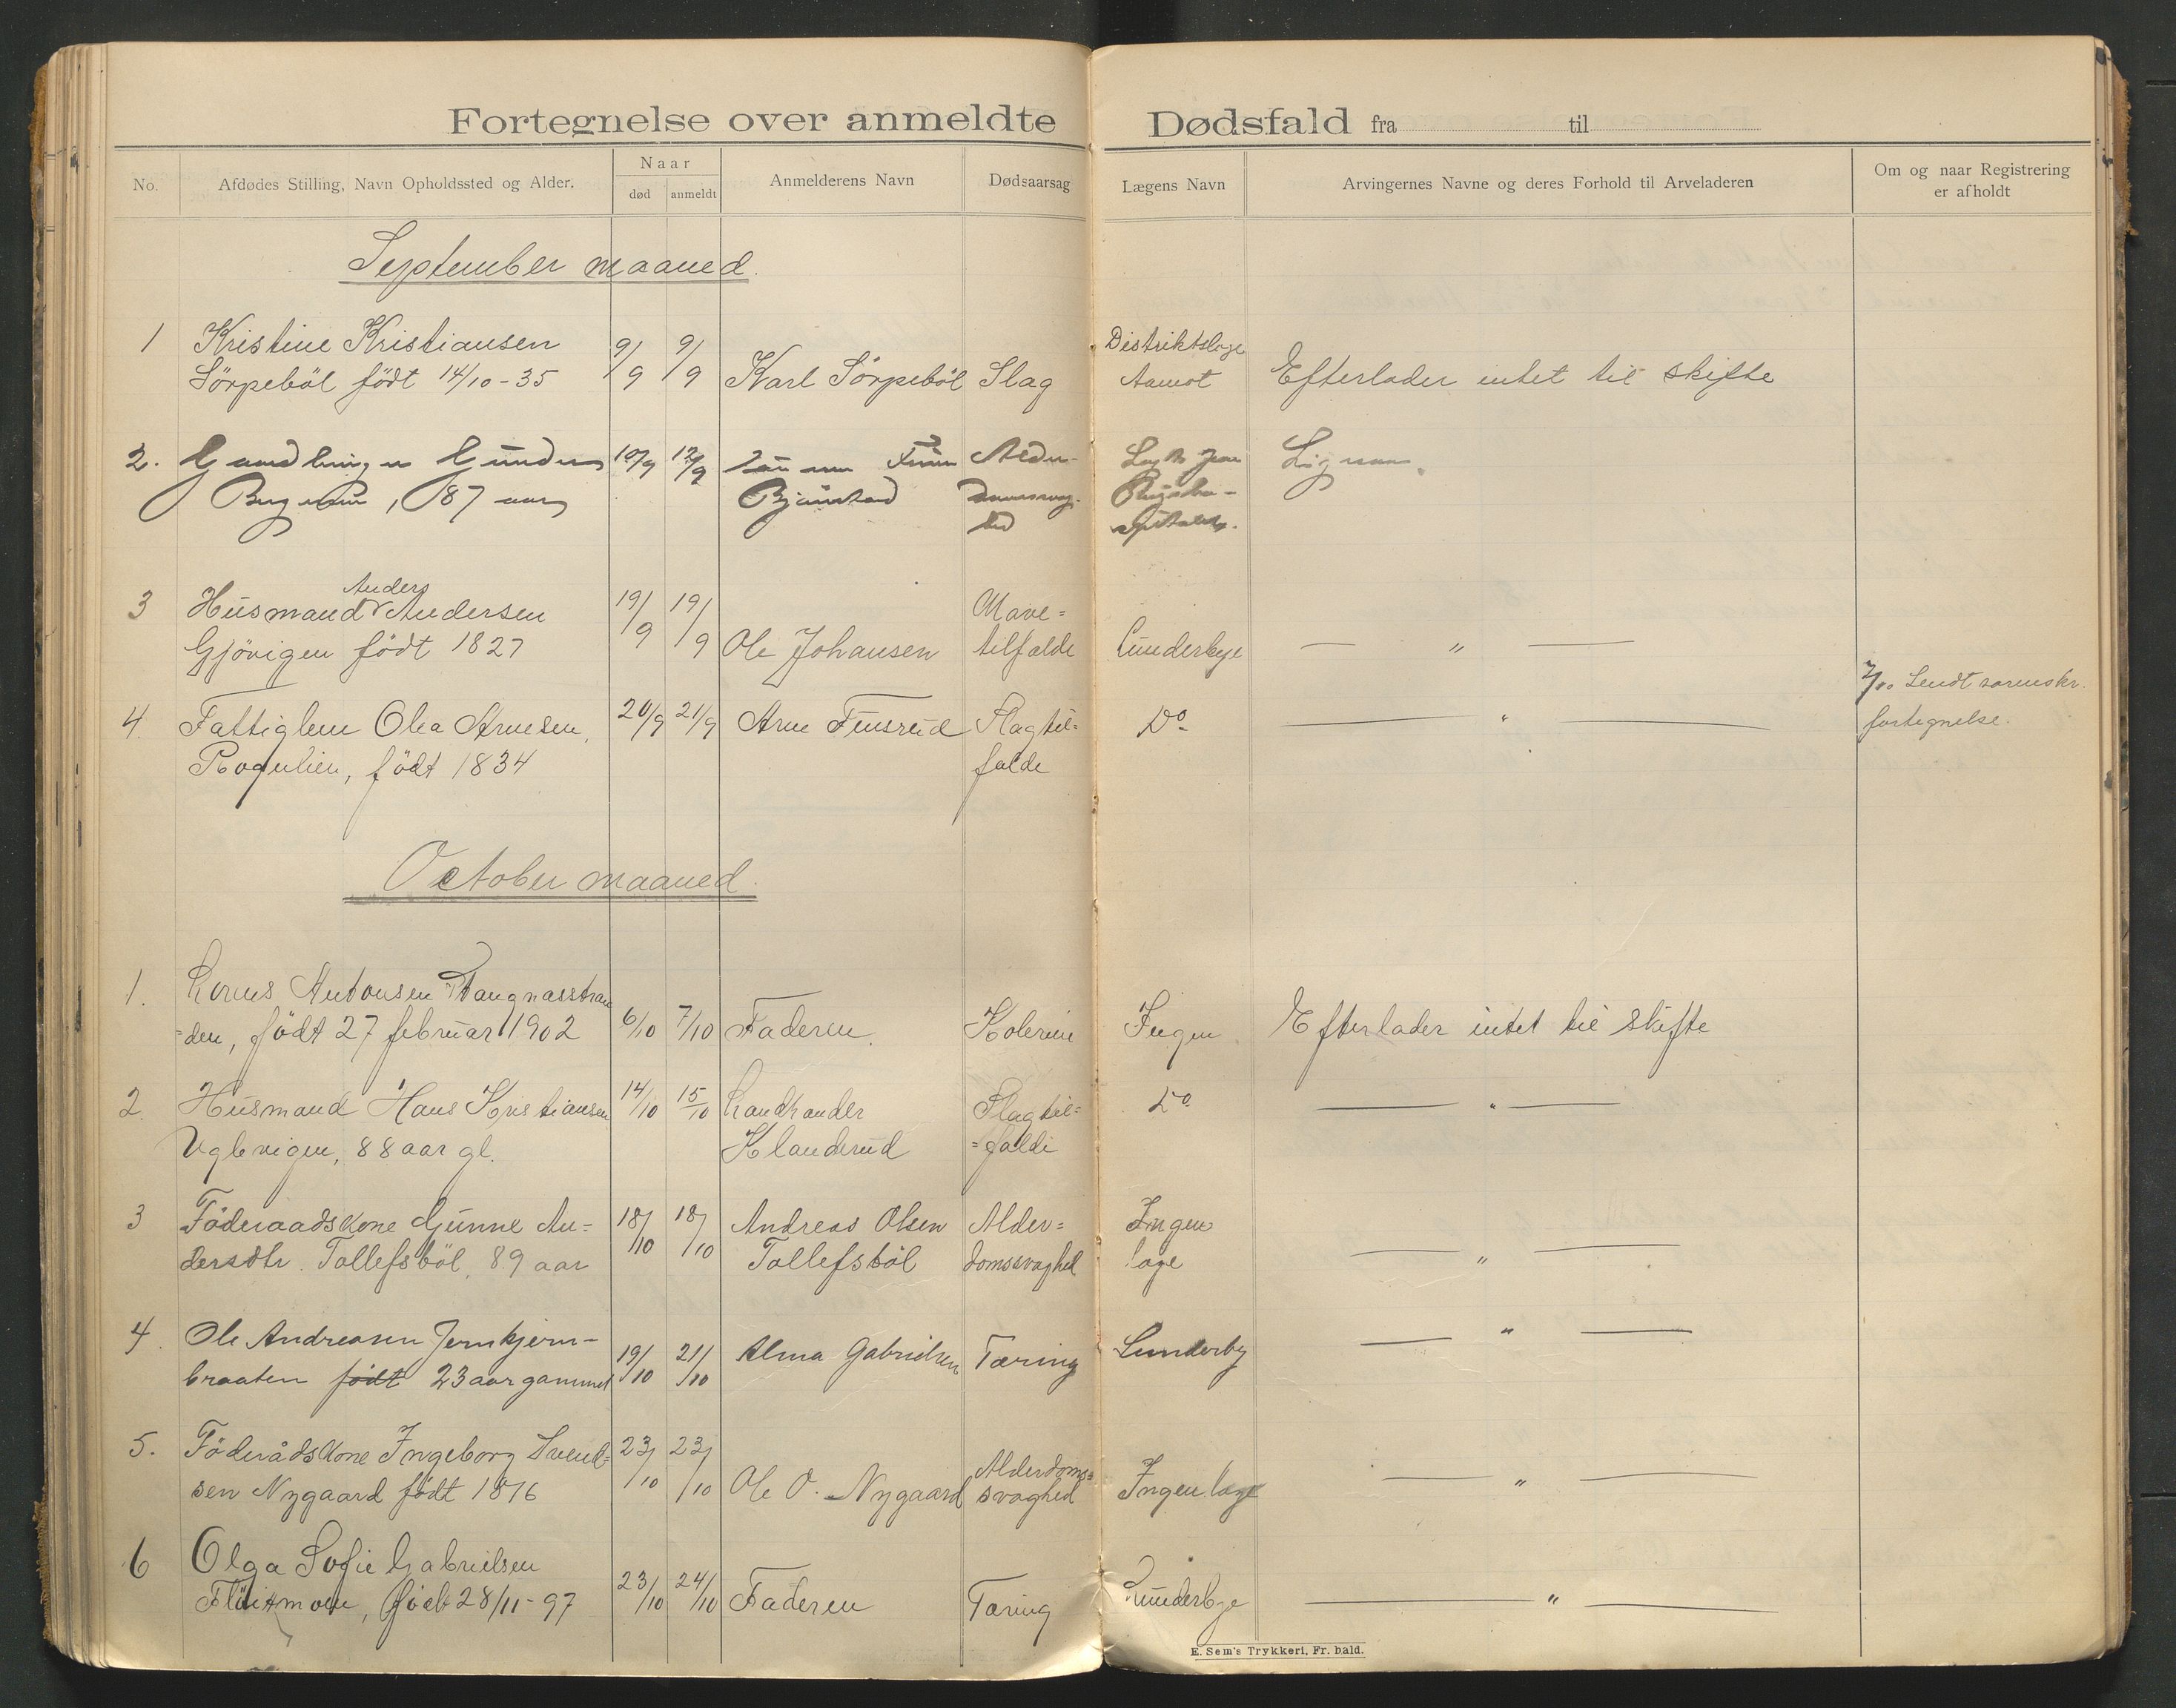 Fortegnelse over anmeldte Dødsfald fra til
No.
Afdødes Stilling, Navn Opholdssted og Alder.
Naar
død
anmeldt
Anmelderens Navn
Dødsaarsag
Lægens Navn
Arvingernes Navne og deres Forhold til Arveladeren
Om og naar Registrering
er afholdt
September maaned.
1 Kristine Kristiansen 9/9 9/9 Karl Sörpeböl Slag Distriktslæge
Sörpeböl födt 14/10-35 Aamot Efterlader intet til skifte
2. 10/9 12/9 Alder-
87 aar
3 Husmand Anders Andersen 19/9 19/9 Mave=
Gjövigen födt 1827 Ole Johansen tilfælde Lunderbye — " —
4. Fattiglem Olea Arnesen, 20/9 21/9 Arne Finsrud Slagtil= Do — " — Sendt sorenskr.
födt 1834 falde fortegnelse.
October maaned.
1. Antonsen Stangnæsstran
=den, födt 27 februar 1902 6/10 7/10 Faderen. Kolerine Ingen Efterlader intet til Skifte
2. Husmand Hans Kristiansen 14/10 15/10 Landhandler Slagtil= Do — " —
Uglevigen, 88 aar gl. Klanderud =faldi
3 Föderaadskone Gunne An= 18/10 18/10 Andreas Olsen Alder= Ingen
dersdtr. Tollefsböl, 89 aar Tollefsböl domssvaghed læge — " —
4. Ole Andreasen Jernkjern-
braaten födt 23 aar gammel 19/10 21/10 Alma Gabrielsen Tæring Lunderby — " —
5. Föderådskone Ingeborg Svend= 23/10 23/10 Alderdoms=
sen Nygaard födt 1816 Ole O. Nygaard svaghed Ingen læge — " —
6 Olga Sofie Gabrielsen
födt 28/11-97 23/10 24/10 Faderen Tæring Lunderbye — " —
E. Sem's Trykkeri, Fr. hald.